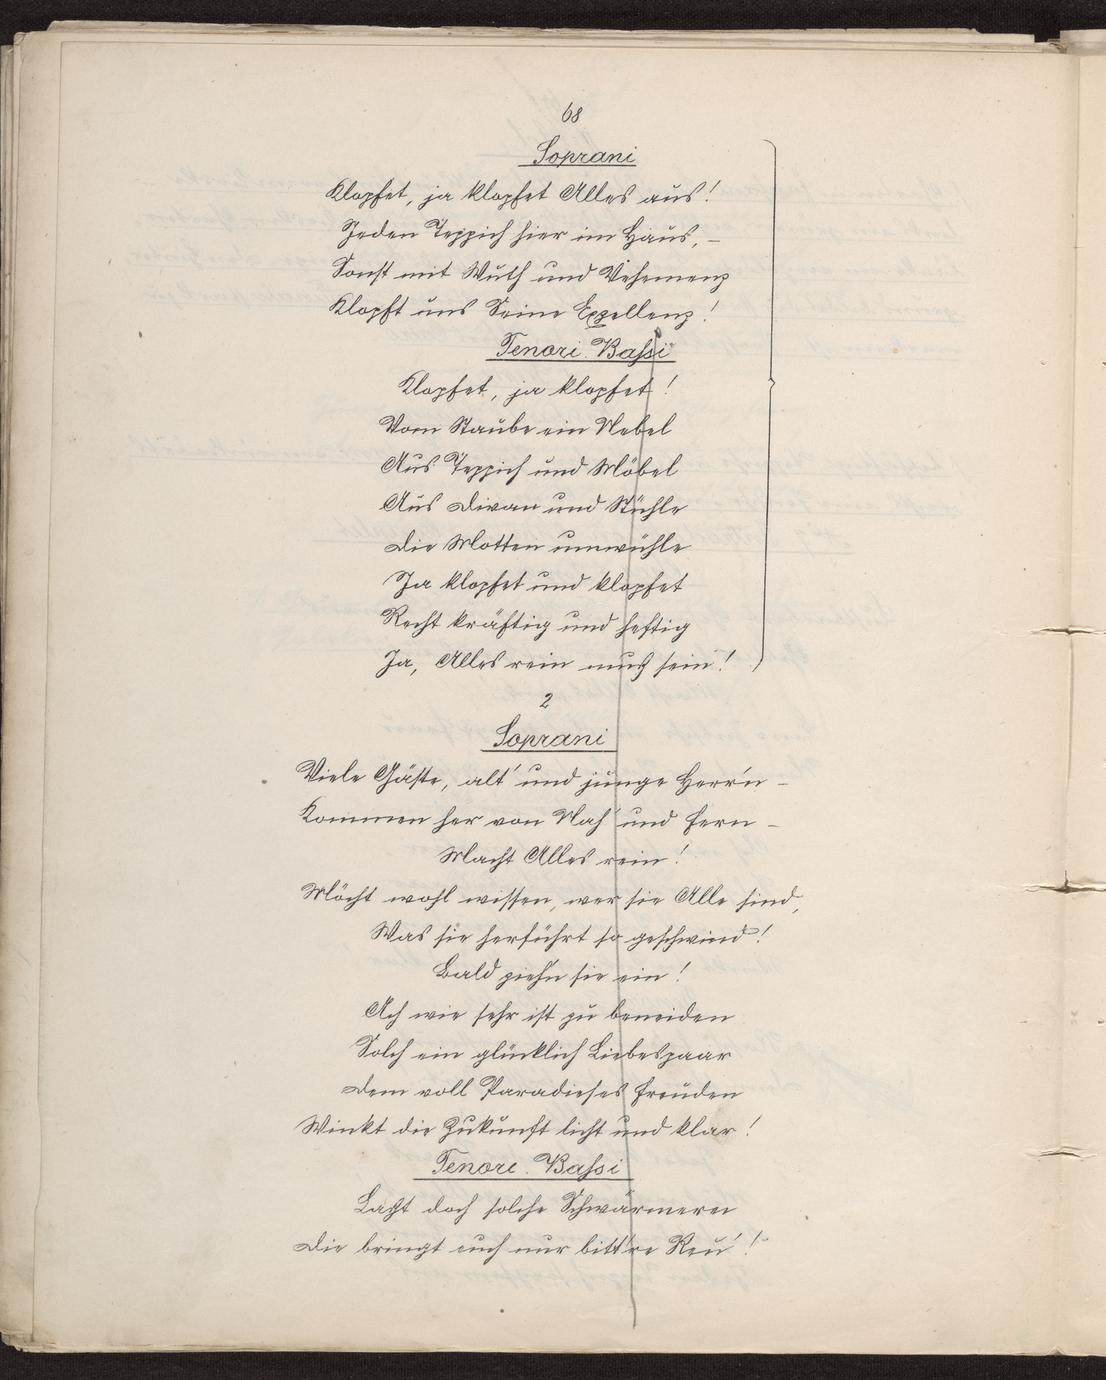 68
Soprani
Klopfet, ja klopfet Alles aus!
Jeden Teppich hier im Haus, –
Sonst mit Wuth und Vehemenz
Klopft uns Seine Exzellenz!
Tenori. Bassi
Klopfet, ja klopfet!
Vom Staube ein Nebel
Aus Teppich und Möbel
Aus Divan und Stühle
Die Motten umwühle
Ja klopfet und klopfet
Recht kräftig und heftig
Ja, Alles rein muß sein!
2
Soprani
Viele Gäste, alt' und junge Herr'n –
Kommen her von Nah' und Fern –
Macht Alles rein!
Möcht wohl wissen, wer sie Alle sind,
Was sie herführt so geschwind!
Bald ziehn sie ein!
Ach wie sehr ist zu beneiden
Solch ein glücklich Liebespaar
Dem voll Paradieses Freuden
Winkt die Zukunft licht und klar!
Tenore. Bassi
Laßt doch solche Schwärmerei
Die bringt euch nur bitt're Reu'!